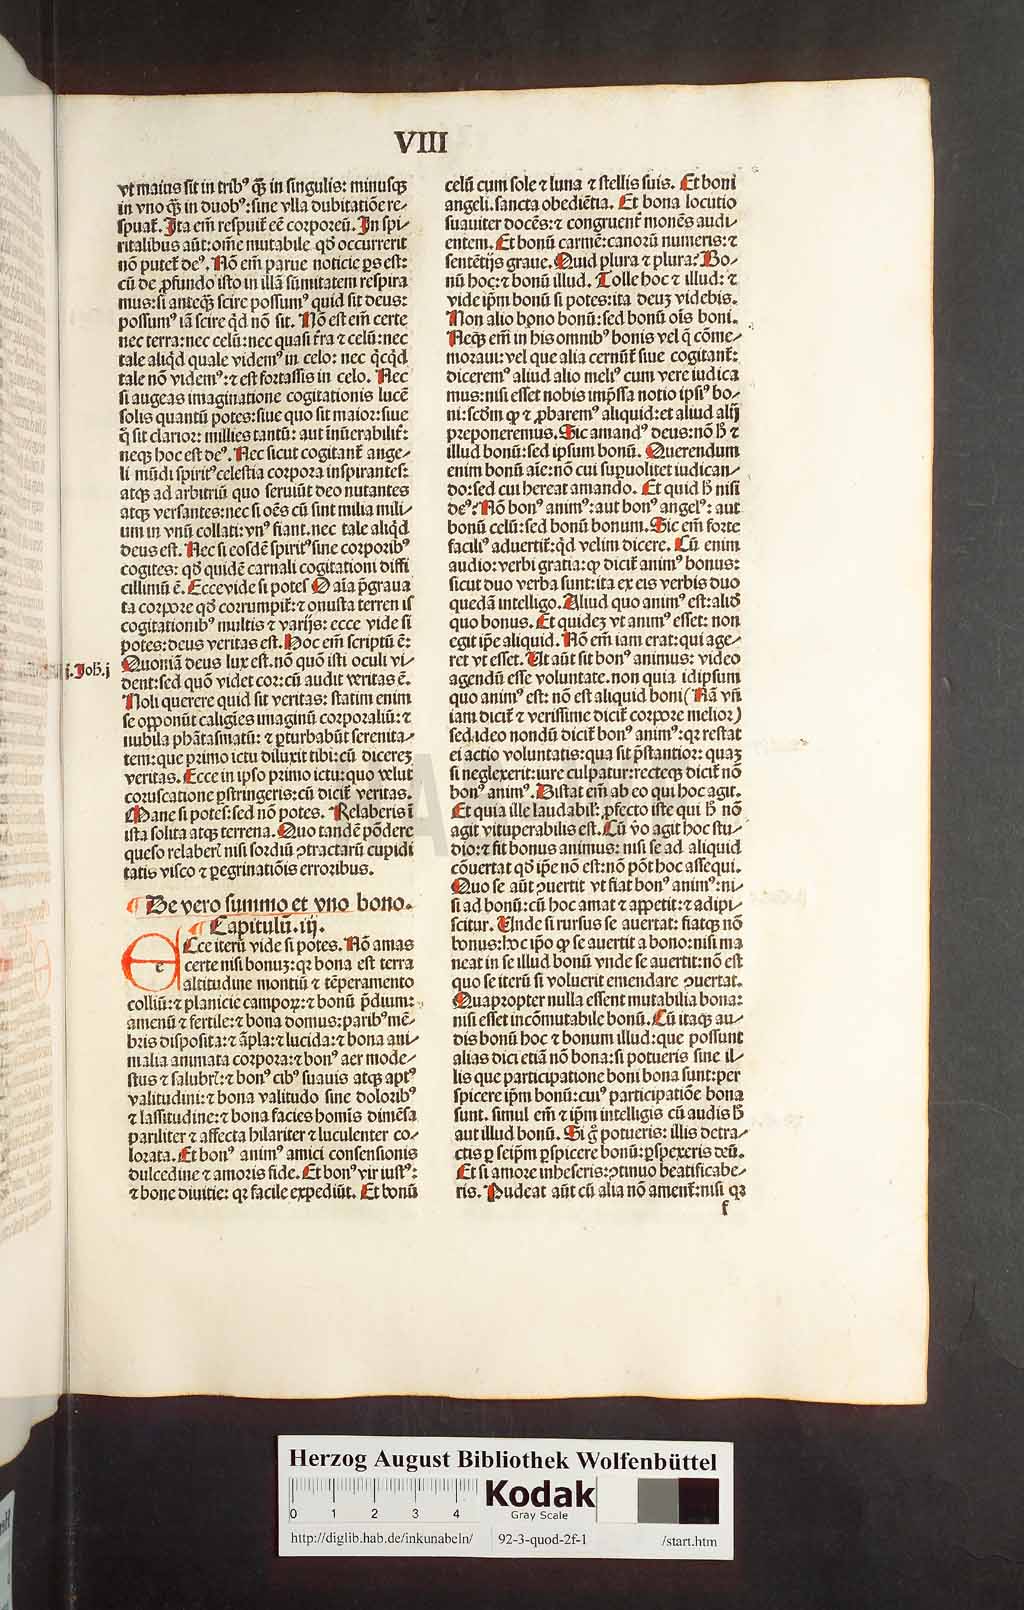 VIII
vt maius sit in tribꝰ qȝ̃ in singulis: minusqȝ
in vno qȝ̃ in duobꝰ: sine vlla dubitatiõe re⸗
spuat᷑. Ita em̃ respuit᷑ eẽ corporeũ. In spi⸗
ritalibus aũt: om̃e mutabile qđ occurrerit
nõ putet᷑ deꝰ. Nõ em̃ parue noticie ps est:
cũ de ꝓfundo isto in illã sũmitatem respira
mus: si anteqȝ̃ scire possumꝰ quid sit deus:
possumꝰ iã scire qͥd nõ sit. Nõ est em̃ certe
nec terra: nec celũ: nec quasi t᷑ra ⁊ celũ: nec
tale aliqͥd quale videmꝰ in celo: nec qͥcqͥd
tale nõ videmꝰ: ⁊ est fortassis in celo. Nec
si augeas imaginatione cogitationis lucẽ
solis quantũ potes: siue quo sit maior: siue
q̃ sit clarior: millies tantũ: aut ĩnũerabilit᷑:
neqȝ hoc est deꝰ. Nec sicut cogitant᷑ ange⸗
li mũdi spiritꝰ celestia corpora inspirantes:
atqȝ ad arbitriũ quo seruiũt deo nutantes
atqȝ versantes: nec si oẽs cũ sint milia mili⸗
um in vnũ collati: vnꝰ fiant. nec tale aliqͥd
deus est. Nec si eosdẽ spiritꝰ sine corporibꝰ
cogites: qđ quidẽ carnali cogitationi diffi
cillimũ ẽ. Ecce vide si potes O aĩa p̃graua
ta corpore qđ corrumpit᷑: ⁊ onusta terren is
cogitationibꝰ multis ⁊ varijs: ecce vide si
potes: deus veritas est. Hoc em̃ scriptũ ẽ:
j. Joħ. j
Quoniã deus lux est. nõ quõ isti oculi vi⸗
dent: sed quõ videt cor: cũ audit veritas ẽ.
Noli querere quid sit veritas: statim enim
se opponũt caligĩes imaginũ corporaliũ: ⁊
nubila phãtasmatũ: ⁊ ꝑturbabũt serenita⸗
tem: que primo ictu diluxit tibi: cũ dicereȝ
veritas. Ecce in ipso primo ictu: quo velut
coruscatione ꝑstringeris: cũ dicit᷑ veritas.
Mane si potes: sed nõ potes. Relaberis ĩ
ista solita atqȝ terrena. Quo tandẽ põdere
queso relaberꝭ nisi sordiũ ꝯtractarũ cupidi
tatis visco ⁊ peregrinatiõis erroribus.
¶ De vero summo et vno bono.
¶ Capitulũ. iij.
e Cce iterũ vide si potes. Nõ amas
certe nisi bonuȝ: qꝛ bona est terra
altitudine montiũ ⁊ tẽperamento
colliũ: ⁊ planicie campoꝝ: ⁊ bonũ p̃dium:
amenũ ⁊ fertile: ⁊ bona domus: paribꝰ mẽ⸗
bris disposita: ⁊ ãpla: ⁊ lucida: ⁊ bona ani⸗
malia animata corpora: ⁊ bonꝰ aer mode⸗
stus ⁊ salubrꝭ: ⁊ bonꝰ cibꝰ suauis atqȝ aptꝰ
valitudini: ⁊ bona valitudo sine doloribꝰ
⁊ lassitudine: ⁊ bona facies homĩs dimẽsa
pariliter ⁊ affecta hilariter ⁊ luculenter co⸗
lorata. Et bonꝰ animꝰ amici consensionis
dulcedine ⁊ amoris fide. Et bonꝰ vir iustꝰ:
⁊ bone diuitie: qꝛ facile expediũt. Et bonũ
celũ cum sole ⁊ luna ⁊ stellis suis. Et boni
angeli. sancta obediẽtia. Et bona locutio
suauiter docẽs: ⁊ congruent᷑ monẽs audi⸗
entem. Et bonũ carmẽ: canorũ numeris: ⁊
sentẽtijs graue. Quid plura ⁊ plura? Bo⸗
nũ hoc: ⁊ bonũ illud. Tolle hoc ⁊ illud: ⁊
vide ip̃m bonũ si potes: ita deuȝ videbis.
Non alio bono bonũ: sed bonũ oĩs boni.
Neqȝ em̃ in his omnibꝰ bonis vel q̃ cõme⸗
moraui: vel que alia cernunt᷑ siue cogitant᷑:
diceremꝰ aliud alio meliꝰ cum vere iudica
mus: nisi esset nobis imp̃ssa notio ipsiꝰ bo⸗
ni: scđm qđ ⁊ ꝓbaremꝰ aliquid: et aliud alij
preponeremus. Sic amandꝰ deus: nõ ħ ⁊
illud bonũ: sed ipsum bonũ. Querendum
enim bonũ aĩe: nõ cui suꝑuolitet iudican⸗
do: sed cui hereat amando. Et quid ħ nisi
deꝰ? Nõ bonꝰ animꝰ: aut bonꝰ angelꝰ: aut
bonũ celũ: sed bonũ bonum. Sic em̃ forte
faciliꝰ aduertit᷑: qͥd velim dicere. Cũ enim
audio: verbi gratia: qđ dicit᷑ animꝰ bonus:
sicut duo verba sunt: ita ex eis verbis duo
quedã intelligo. Aliud quo animꝰ est: aliđ
quo bonus. Et quideȝ vt animꝰ esset: non
egit ip̃e aliquid. Nõ em̃ iam erat: qui age⸗
ret vt esset. Ut aũt sit bonꝰ animus: video
agendũ esse voluntate. non quia idipsum
quo animꝰ est: nõ est aliquid boni (Nã vñ
iam dicit᷑ ⁊ verissime dicit᷑ corpore melior)
sed ideo nondũ dicit᷑ bonꝰ animꝰ: qꝛ restat
ei actio voluntatis: qua sit p̃stantior: quaȝ
si neglexerit: iure culpatur: recteqȝ dicit᷑ nõ
bonꝰ animꝰ. Distat em̃ ab eo qui hoc agit.
Et quia ille laudabilꝭ: ꝓfecto iste qui ħ nõ
agit vituperabilis est. Cũ v̊o agit hoc stu⸗
dio: ⁊ fit bonus animus: nisi se ad aliquid
cõuertat qđ ip̃e nõ est: nõ põt hoc assequi.
Quo se aũt ꝯuertit vt fiat bonꝰ animꝰ: ni⸗
si ad bonũ: cũ hoc amat ⁊ appetit: ⁊ adipi⸗
scitur. Unde si rursus se auertat: fiatqȝ nõ
bonus: hoc ip̃o qđ se auertit a bono: nisi ma
neat in se illud bonũ vnde se auertit: nõ est
quo se iterũ si voluerit emendare ꝯuertat.
Quapropter nulla essent mutabilia bona:
nisi esset incõmutabile bonũ. Cũ itaqȝ au⸗
dis bonũ hoc ⁊ bonum illud: que possunt
alias dici etiã nõ bona: si potueris sine il⸗
lis que participatione boni bona sunt: per
spicere ip̃m bonũ: cuiꝰ participatiõe bona
sunt. simul em̃ ⁊ ip̃m intelligis cũ audis ħ
aut illud bonũ. Si g̊ potueris: illis detra⸗
ctis ꝑ seip̃m ꝑspicere bonũ: ꝑspexeris deũ.
Et si amore inheseris: ꝯtinuo beatificabe⸗
ris. Pudeat aũt cũ alia nõ ament᷑: nisi qꝛ
f
Herzog August Bibliothek Wolfenbüttel
0 1 2 3 4
Kodak
Gray Scale
http://diglib.hab.de/inkunabeln/ 92-3-quod-2f-1 /start.htm